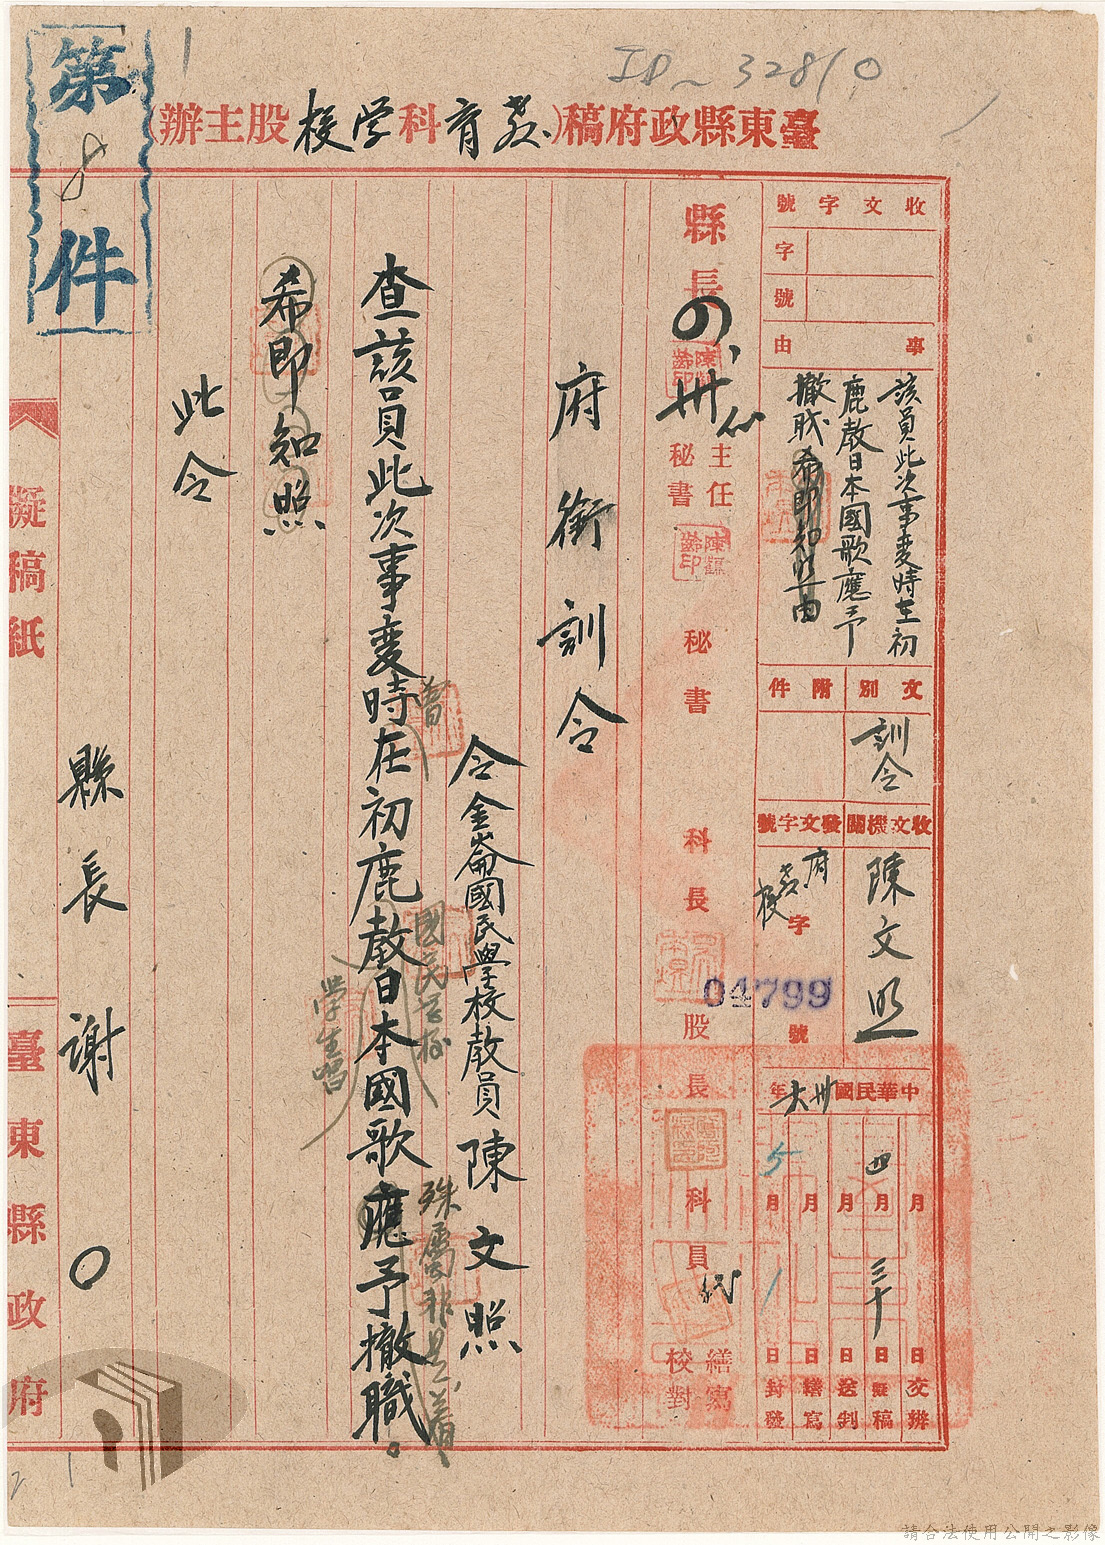 ID~32810
臺東縣政府稿(教育科学校股主辦
第8件
收文字號
字
號
事由
該員此次事变時在初
鹿教日本國歌應予
撤职希即知照由
文別
訓令
附件
收文機關
陳文照
發文字號
府教校字
04799
號
中華民國卅六年
月 日 交辦
四月三十日擬稿
月 日 送判
月 日 繕寫
5月1日封發
縣長
卅
主任秘書
秘書
科長
股長
科員
繕寫
校對
府銜訓令
令金崙國民學校教員陳文照
查該員此次事变時在初鹿教日本國歌應予撤職。
曾
國民学校
學生唱
殊屬非是着
希即知照
此令
縣長謝〇
擬稿紙
臺東縣政府
請合法使用公開之影像